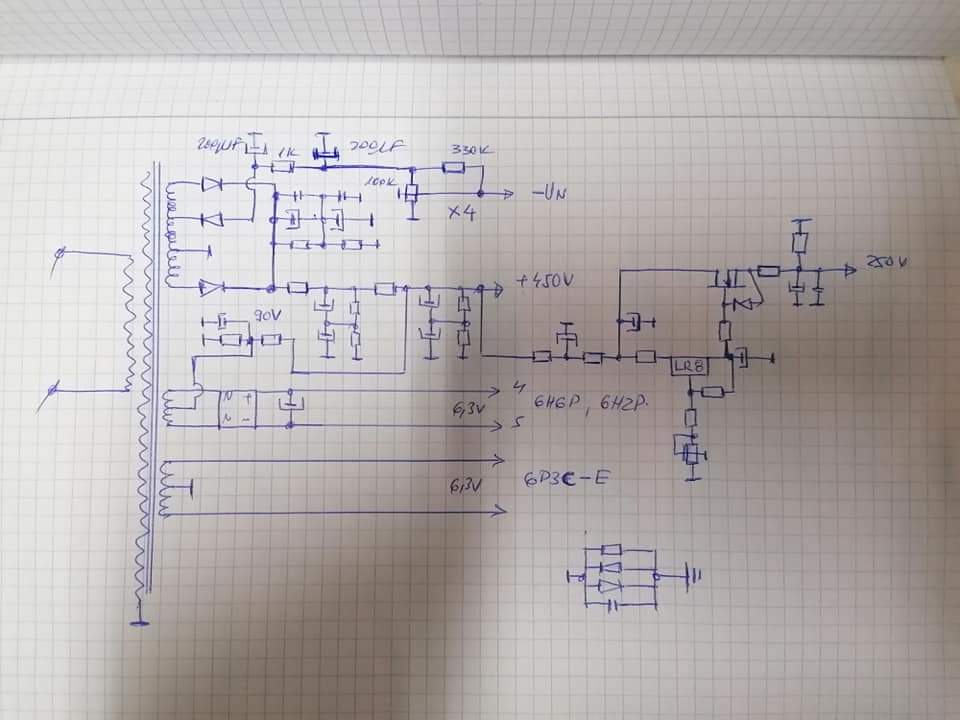 200µF 1K 200µF 330K
100K
-UN
X4
+450V
250V
90V
LR8
N +
N -
4
6,3V
6H6P, 6H2P.
5
6,3V
6P3C-E